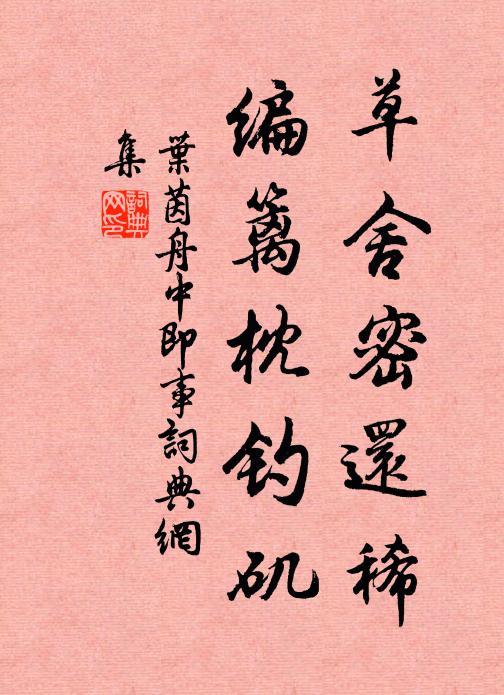 草舍密還稀
編篱枕钓矶
葉茵舟中即事詞典網
集
詞典
网印